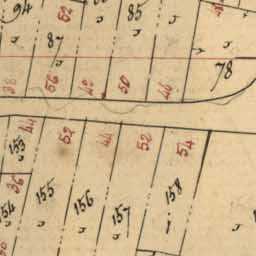 94
52
85
87
78
38
56
42
50
46
44
52
44
52
54
153
36
154
155
156
157
158